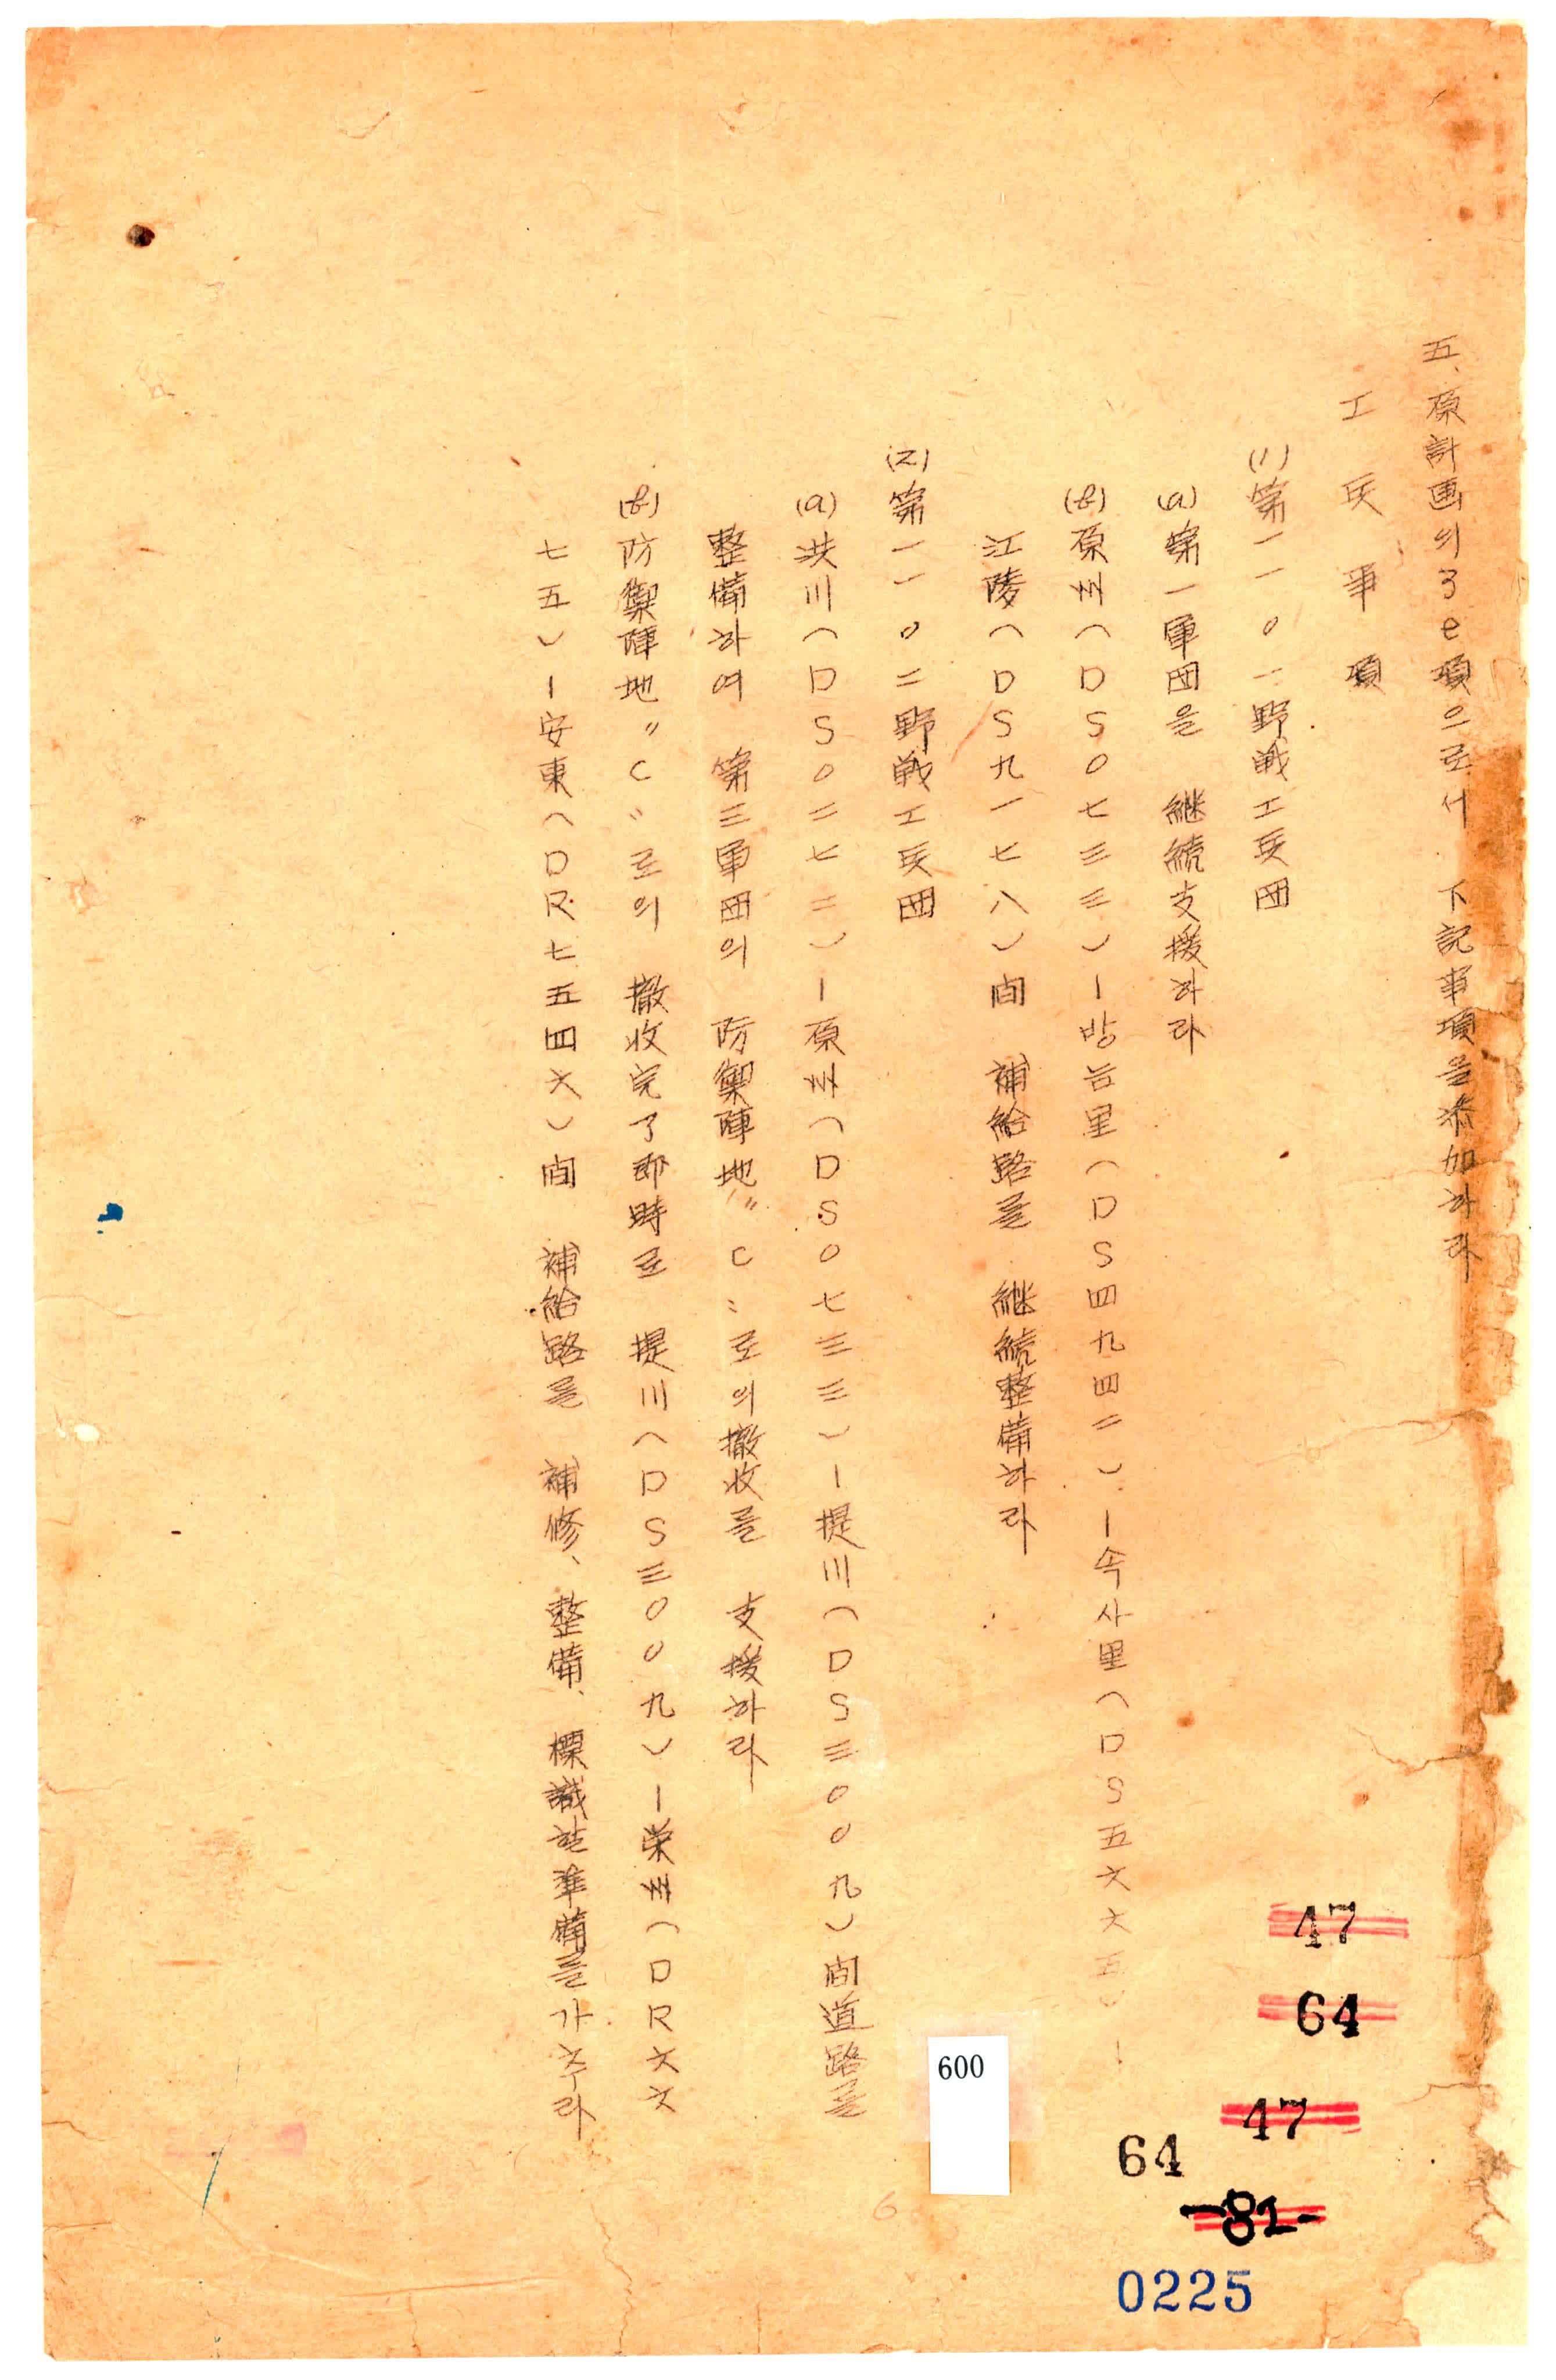 五、原計画의 3e項으로서 下記事項을 添加하라
工兵事項
(1) 第一一０一野戦工兵団
(a) 第一軍団을 継続支援하라
(b) 原州(DS０七三三)—방능里(DS四九四二)—속사里(DS五六六五)—
江陵(DS九一七八)間 補給路를 継続整備하라
(2) 第一一０二野戦工兵団
(a) 洪川(DS０二七二)—原州(DS０七三三)—提川(DS三００九)間道路를
整備하여 第三軍団의 防禦陣地"C"로의撤收를 支援하라
(b) 防禦陣地"C"로의 撤收完了即時로 提川(DS三００九)—栄州(DR六六
七五)—安東(DR七五四六)間 補給路를 補修、整備、標識할準備를가추라
47
64
47
64
-81-
600
0225